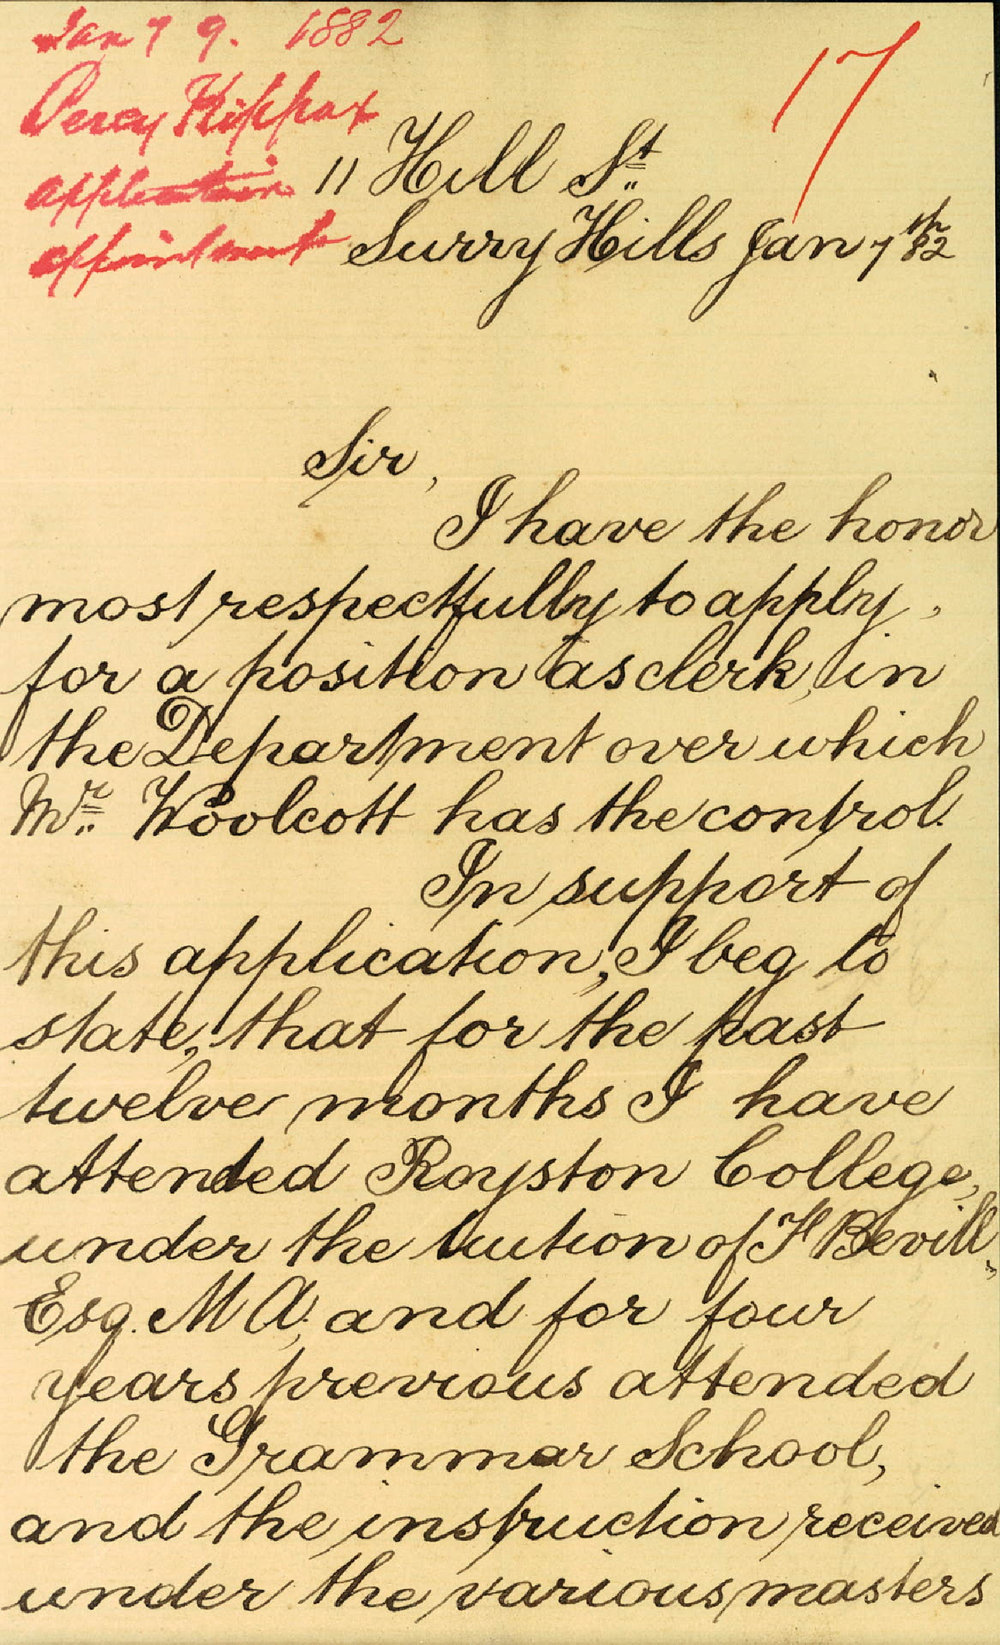 Jan 7 9. 1882
17
Percy Kippax
application
appointment
11 Hill St
Surry Hills Jan 7th 82
Sir,
I have the honor
most respectfully to apply,
for a position as clerk, in
the Department over which
Mr. Woolcott has the control.
In support of
this application, I beg to
state, that for the past
twelve months I have
attended Royston College,
under the tuition of F Bevill,
Esq. M A, and for four
years previous attended
the Grammar School,
and the instruction received
under the various masters